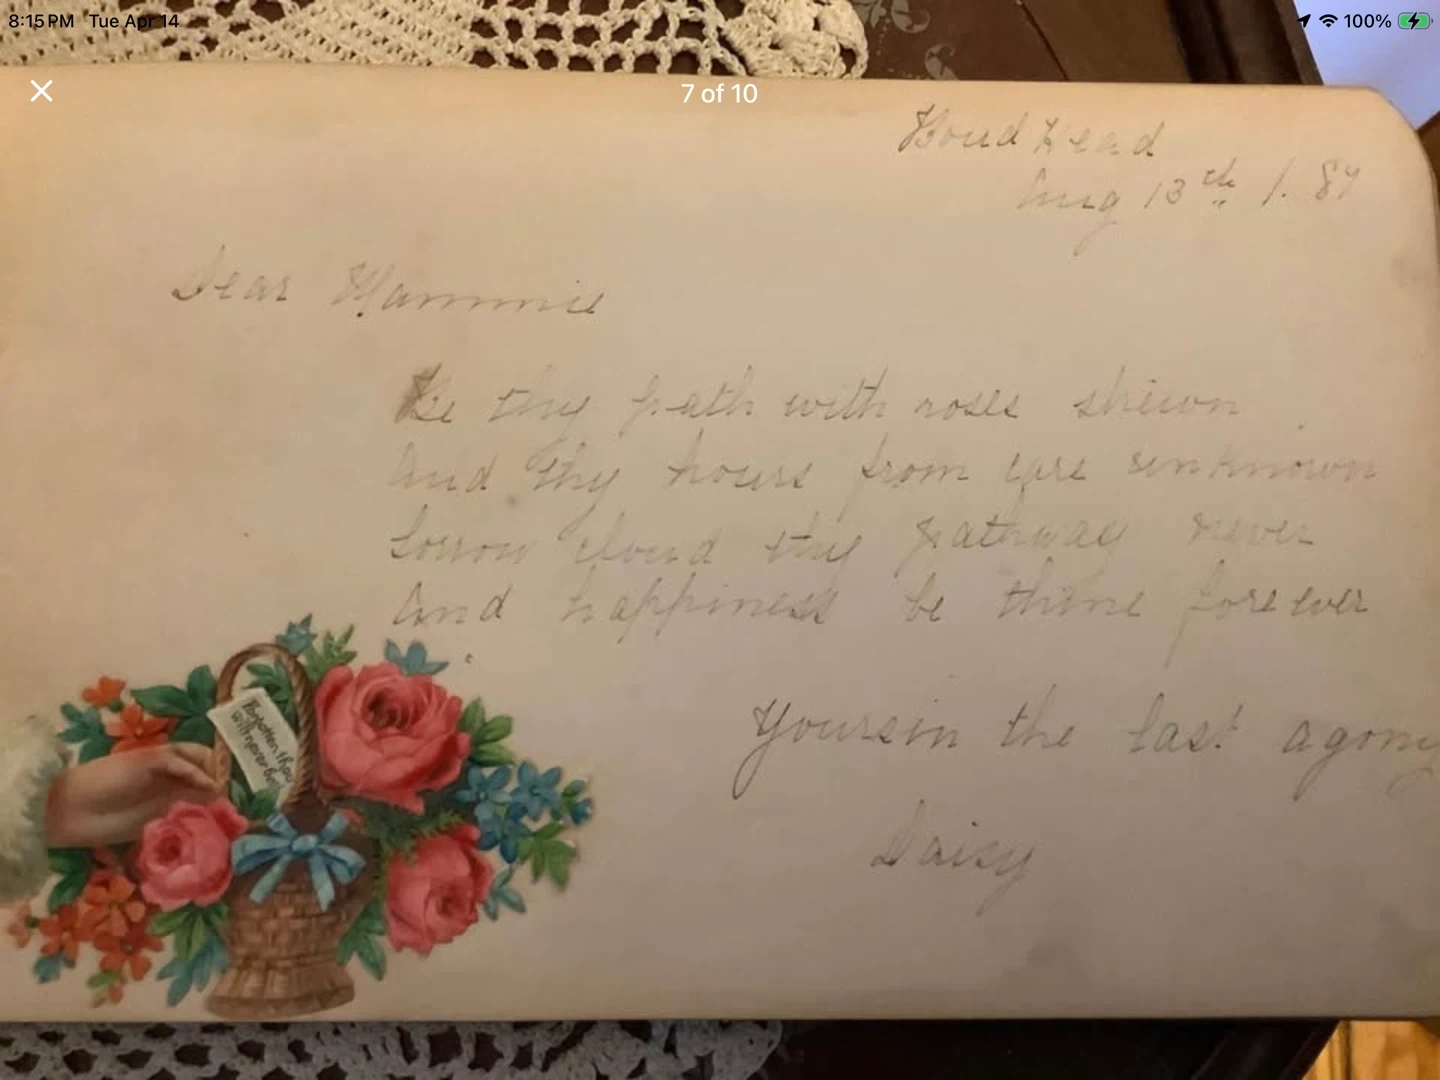 8:15 PM Tue Apr 14
100%
7 of 10
Bond Head
Aug 13th /. 87
Dear Mammie
Be thy path with roses shrewn
And thy hours from care unknown
Sorrow cloud thy pathway never
And happiness be thine forever
Yours in the last agony
Daisy
Forgotten thou
wilt never be